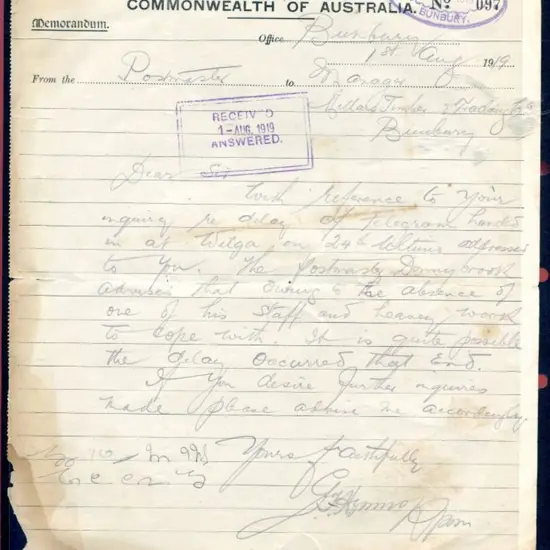 COMMONWEALTH OF AUSTRALIA. No 097
BUNBURY.
Memorandum.
Office Bunbury
1st Aug 1919
From the Postmaster to Manager
Millars Timber & Trading Co
Bunbury
RECEIVED
1-AUG. 1919
ANSWERED.
Dear Sir
With reference to your
inquiry re delay of telegram handed
in at Wilga on 24th ultimo addressed
to you. The Postmaster Donnybrook
advises that owing to the absence of
one of his staff and heavy work
to cope with. It is quite possible
the delay occurred that end.
If you desire further inquiries
made please advise me accordingly.
Yours faithfully